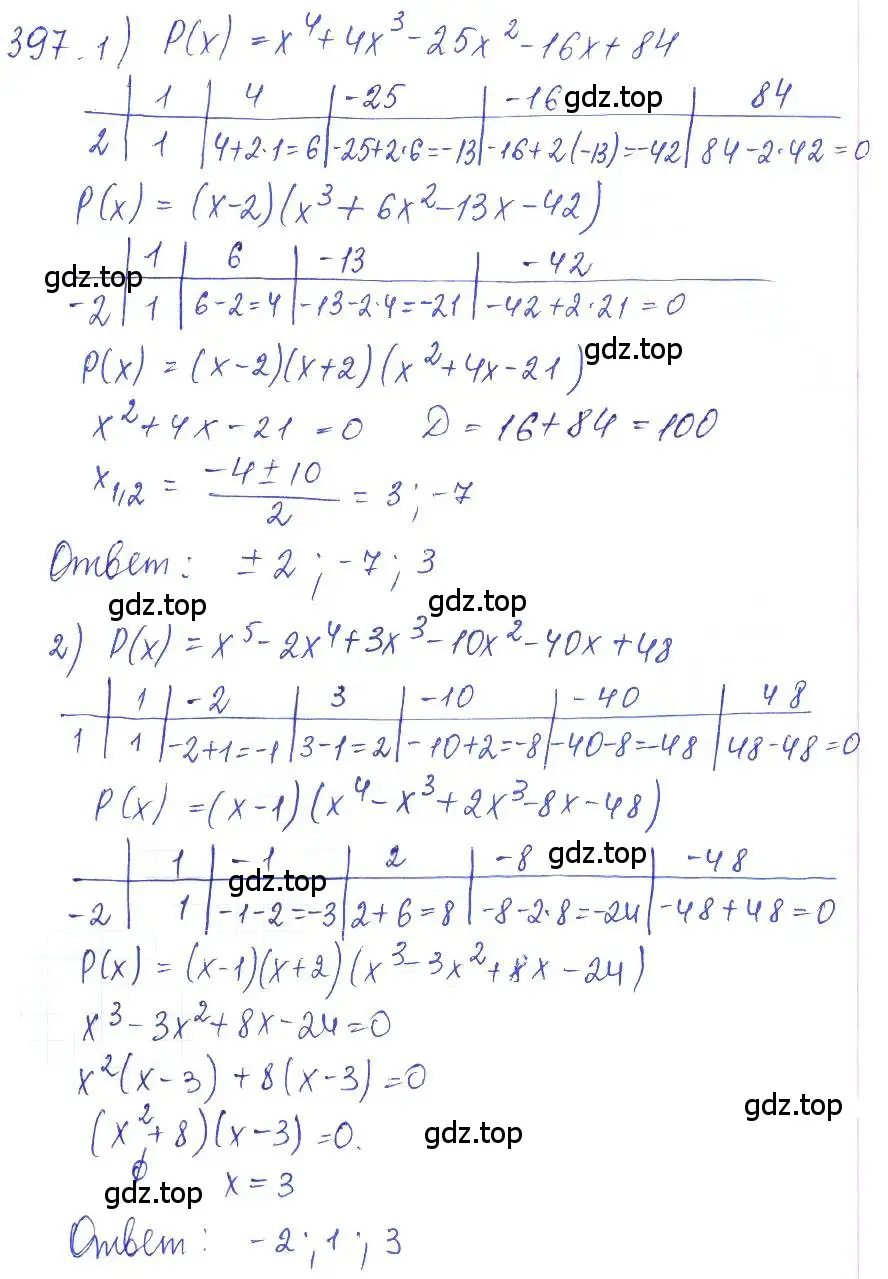 397. 1) P(x) = x⁴ + 4x³ - 25x² - 16x + 84
1 | 4 | -25 | -16 gdz.top | 84
2 | 1 | 4+2·1=6 | -25+2·6=-13 | -16+2(-13)=-42 | 84-2·42=0
P(x) = (x-2)(x³ + 6x² - 13x - 42)
gdz.top | 1 | 6 | -13 | -42
-2 | 1 | 6-2=4 | -13-2·4=-21 | -42+2·21=0
P(x) = (x-2)(x+2)(x² + 4x - 21) gdz.top
x² + 4x - 21 = 0 D = 16 + 84 = 100
x₁,₂ = (-4 ± 10)/2 = 3; -7
Ответ: ±2; -7; 3
gdz.top gdz.top
2) P(x) = x⁵ - 2x⁴ + 3x³ - 10x² - 40x + 48
1 | -2 | 3 | -10 | -40 | 48
1 | 1 | -2+1=-1 | 3-1=2 | -10+2=-8 | -40-8=-48 | 48-48=0
P(x) = (x-1)(x⁴ - x³ + 2x³ - 8x - 48)
1 | -1 | 2 | -8 gdz.top | -48
gdz.top
-2 | 1 | -1-2=-3 | 2+6=8 | -8-2·8=-24 | -48+48=0
P(x) = (x-1)(x+2)(x³ - 3x² + 8x - 24)
x³ - 3x² + 8x - 24 = 0
x²(x-3) + 8(x-3) = 0
gdz.top
(x² + 8)(x-3) = 0. gdz.top
∅ x = 3
gdz.top
Ответ: -2; 1; 3